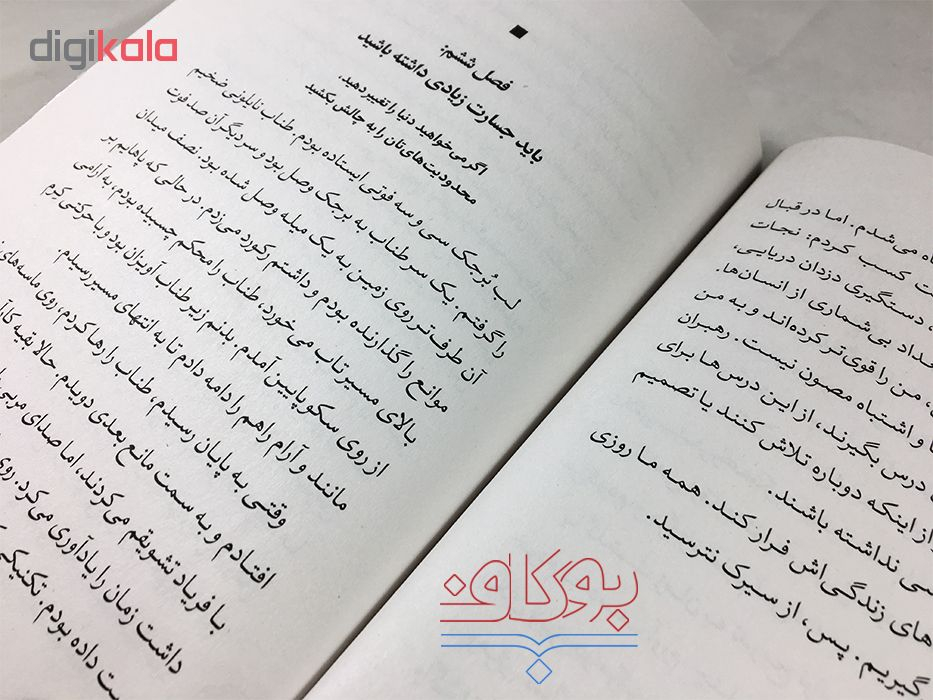 digikala
فصل ششم:
باید جسارت زیادی داشته باشید
اگر می‌خواهید دنیا را تغییر دهید،
محدودیت‌های تان را به چالش بکشید
لب بُرجک سی و سه فوتی ایستاده بودم. طناب نایلونی ضخیم
را گرفتم. یک سر طناب به برجک وصل بود و سر دیگر آن صد فوت
آن طرف‌تر روی زمین به یک میله وصل شده بود. نصف میدان
موانع را گذارنده بودم و داشتم رکورد می‌زدم. در حالی که پاهایم بر
بالای مسیر تاب می‌خورد، طناب را محکم چسبیده بودم، به آرامی
از روی سکو پایین آمدم. بدنم زیر طناب آویزان بود و با حرکتی کرم
مانند و آرام راهم را ادامه دادم تا به انتهای مسیر رسیدم.
وقتی به پایان رسیدم، طناب را رها کردم، روی ماسه‌های
افتادم و به سمت مانع بعدی دویدم. حالا بقیه
با فریاد تشویقم می‌کردند، اما صدای مربی
داشت زمان را یادآوری می‌کرد. روی
ست داده بودم. تکنیکی
می‌شدم. اما در قبال
کسب کردم: نجات
، دستگیری دزدان دریایی،
بی شماری از انسان‌ها.
، من را قوی‌تر کرده‌اند و به من
و اشتباه مصون نیست. رهبران
درس بگیرند، از این درس‌ها برای
از اینکه دوباره تلاش کنند یا تصمیم
نداشته باشند.
های زندگی‌اش فرار کند. همه ما روزی
گیریم. پس، از سیرک نترسید.
بوکاوند